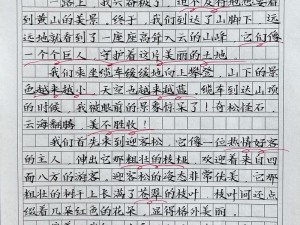 一路上，我兴奋极了，迫不及待地想要看
到黄山的美景。终于，我们到达了山脚下，远
远地就看到了一座座高耸入云的山峰，它们像
一个个巨人，守护着这片美丽的土地。
我们乘坐缆车缓缓地向上攀登，山下的景
色越来越小，天空也越来越蓝。缆车到达山顶
的时候，我被眼前的景象惊呆了！奇松怪石，
云海翻腾，美不胜收！
我们首先来到迎客松，它像一位热情好客
的主人，伸出它那粗壮的枝桠，欢迎着来自四
面八方的游客。迎客松的姿态非常优美，它那
粗壮的树干上长满了苍翠的枝叶，枝叶间还点
缀着几朵红色的花朵，显得格外美丽。